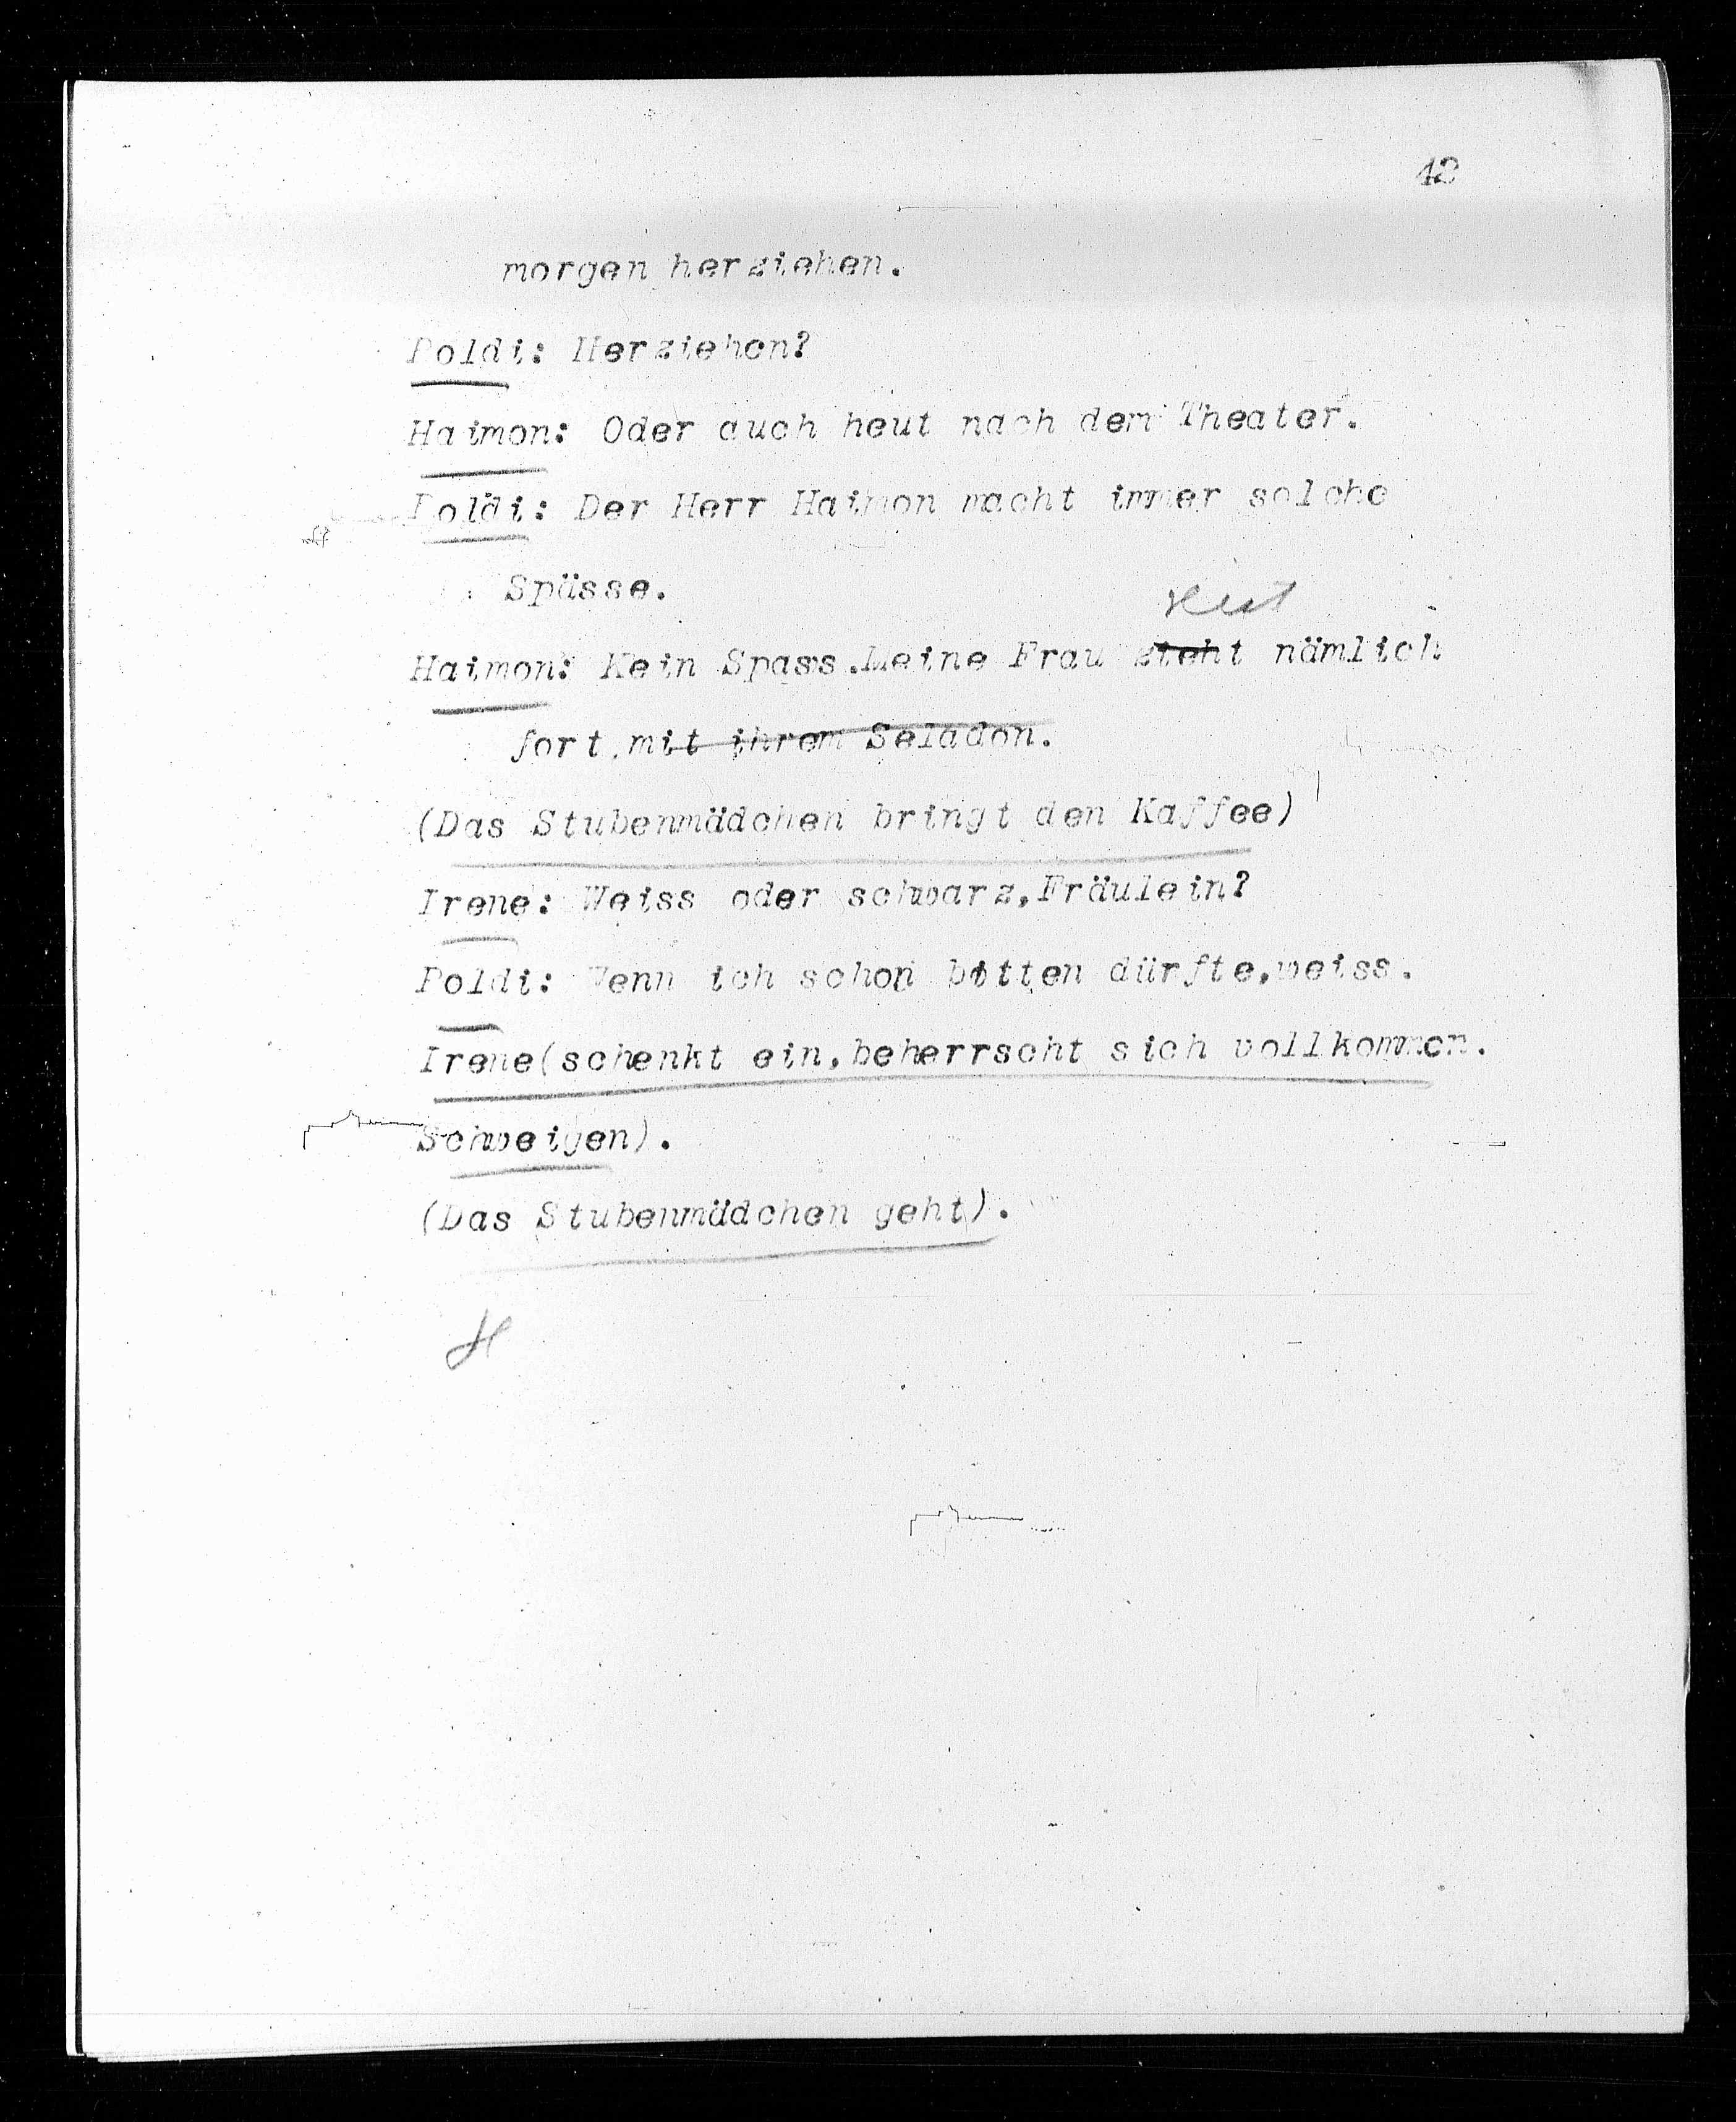 42
morgen herziehen.
Poldi: Herziehen?
Haimon: Oder auch heut nach dem Theater.
Poldi: Der Herr Haimon macht immer solche
Spässe.
reist
Haimon: Kein Spass.Meine Frau zieht nämlich
fort,mit ihrem Seladon.
(Das Stubenmädchen bringt den Kaffee)
Irene: Weiss oder schwarz,Fräulein?
Poldi: Wenn ich schon bitten dürfte,weiss.
Irene(schenkt ein,beherrscht sich vollkommen.
Schweigen).
(Das Stubenmädchen geht).